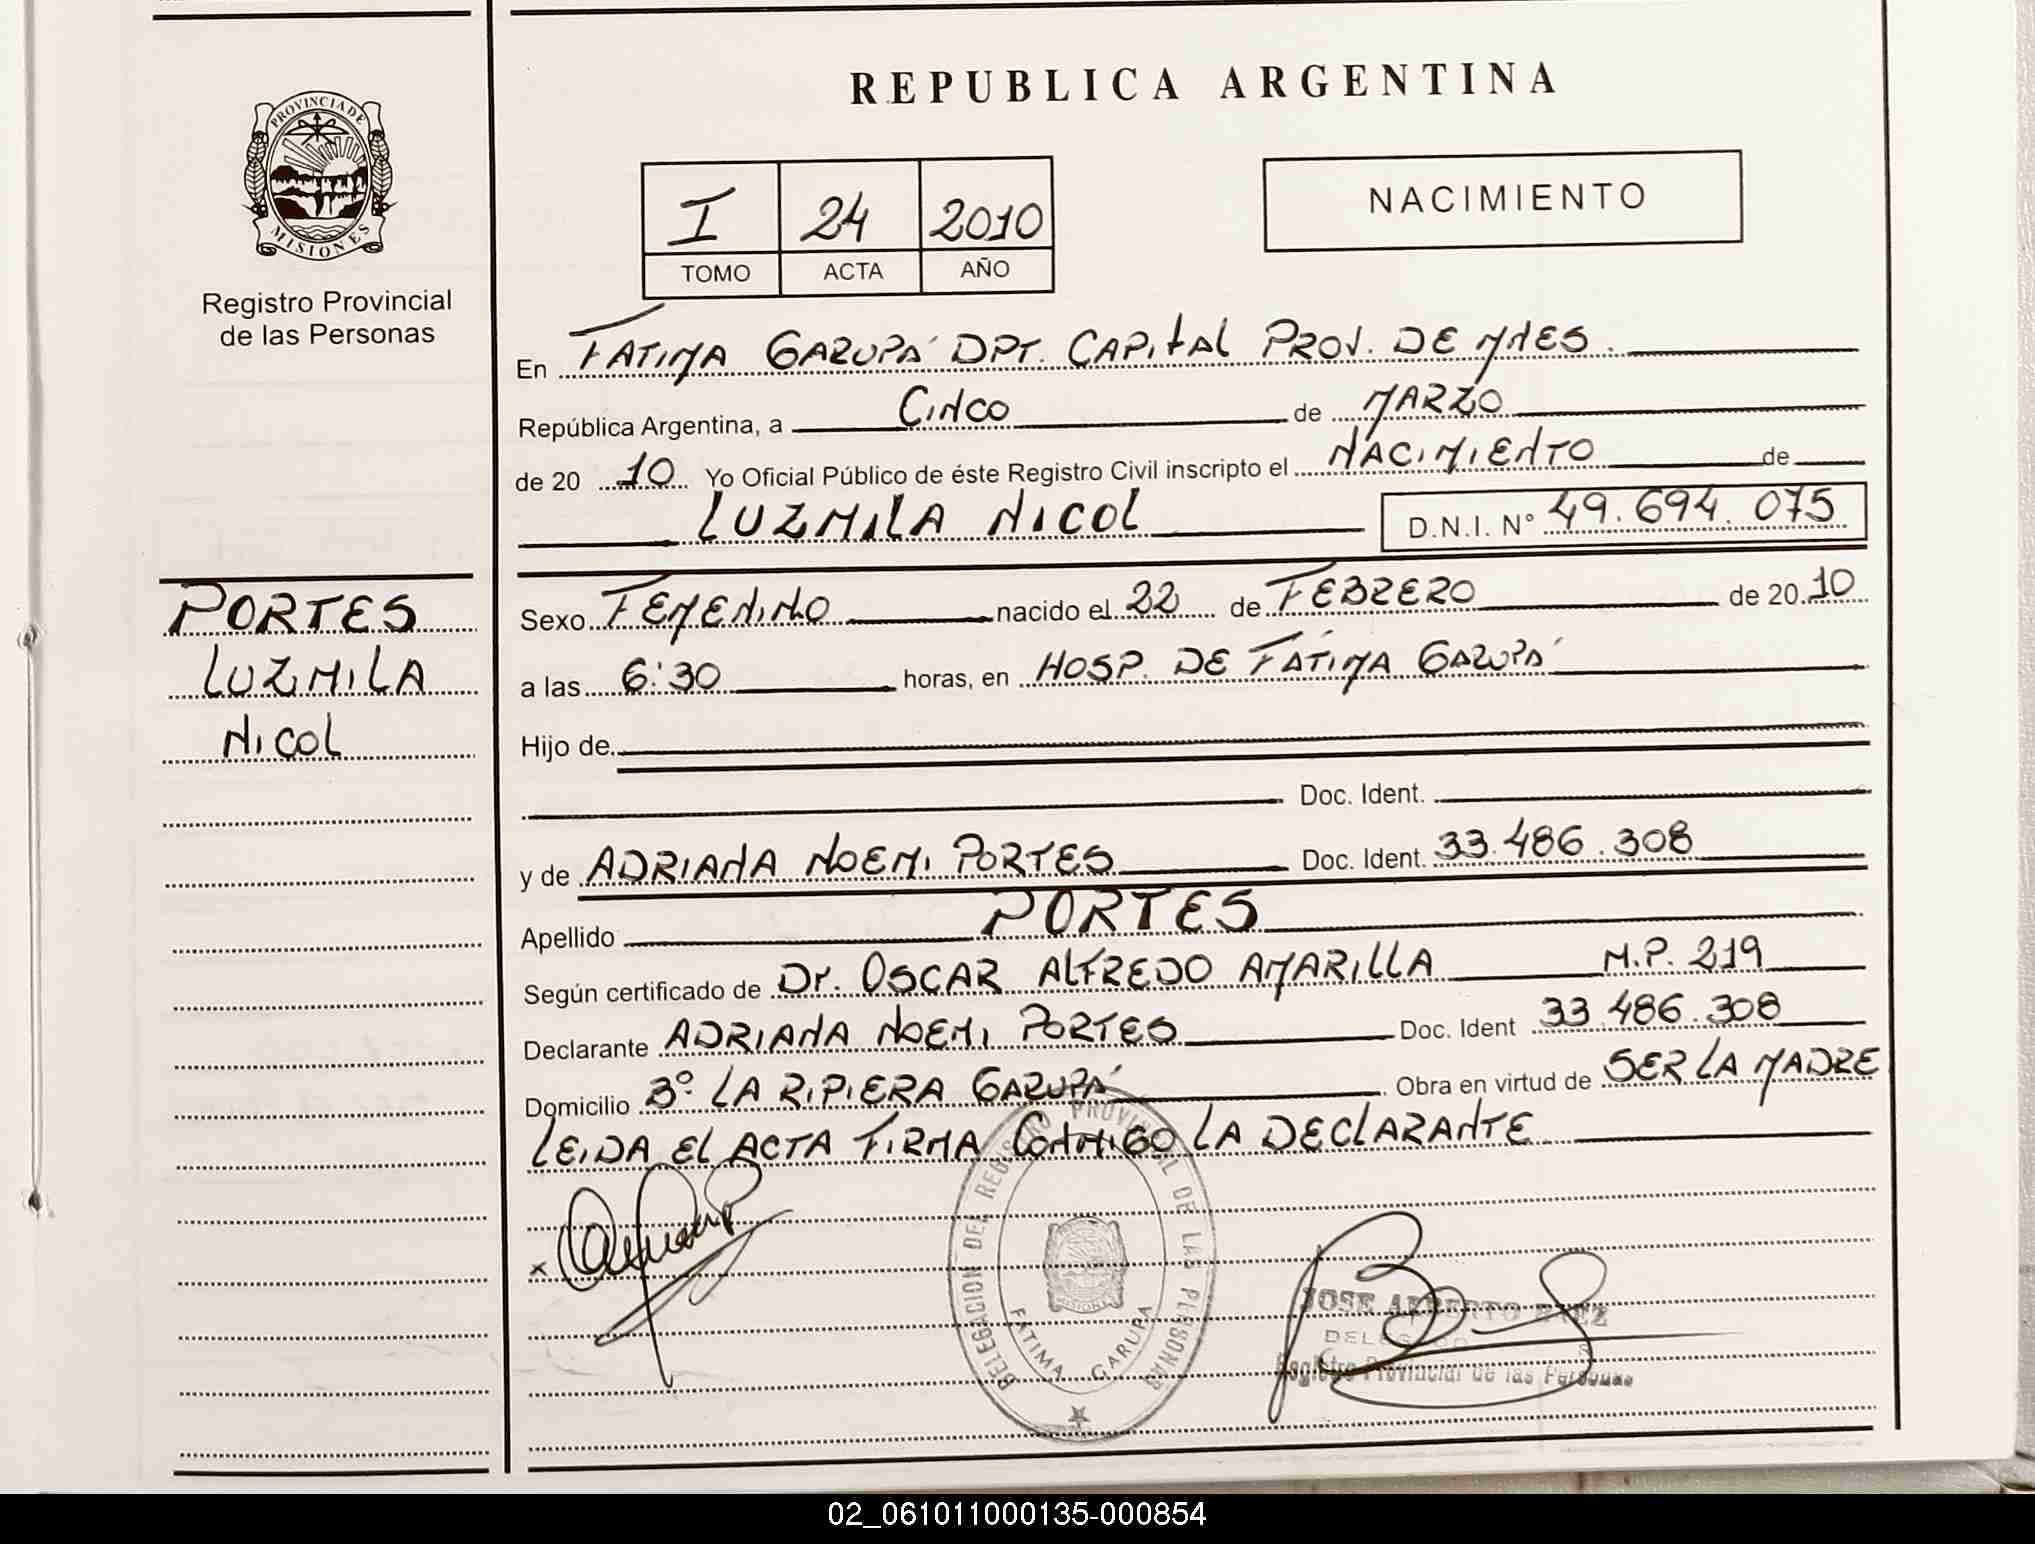 REPUBLICA ARGENTINA
PROVINCIA DE
MISIONES
Registro Provincial
de las Personas
I 24 2010
TOMO ACTA AÑO
NACIMIENTO
En FATIMA GARUPÁ DPT. CAPITAL PROV. DE MNES.
República Argentina, a CINCO de MARZO
de 20 10 Yo Oficial Público de éste Registro Civil inscripto el NACIMIENTO de
LUZMILA NICOL D.N.I. N° 49.694.075
PORTES
LUZMILA
NICOL
Sexo FEMENINO nacido el 22 de FEBRERO de 20 10
a las 6:30 horas, en HOSP. DE FÁTIMA GARUPÁ
Hijo de
Doc. Ident.
y de ADRIANA NOEMI PORTES Doc. Ident. 33.486.308
Apellido PORTES
Según certificado de Dr. OSCAR ALFREDO AMARILLA M.P. 219
Declarante ADRIANA NOEMI PORTES Doc. Ident 33.486.308
Domicilio B° LA RIPIERA GARUPÁ Obra en virtud de SER LA MADRE
LEIDA EL ACTA FIRMA CONMIGO LA DECLARANTE
DELEGACION DEL REGISTRO PROVINCIAL DE LAS PERSONAS
FATIMA GARUPA
MISIONES
x
JOSE ALBERTO BAEZ
DELEGADO
Registro Provincial de las Personas
02_061011000135-000854